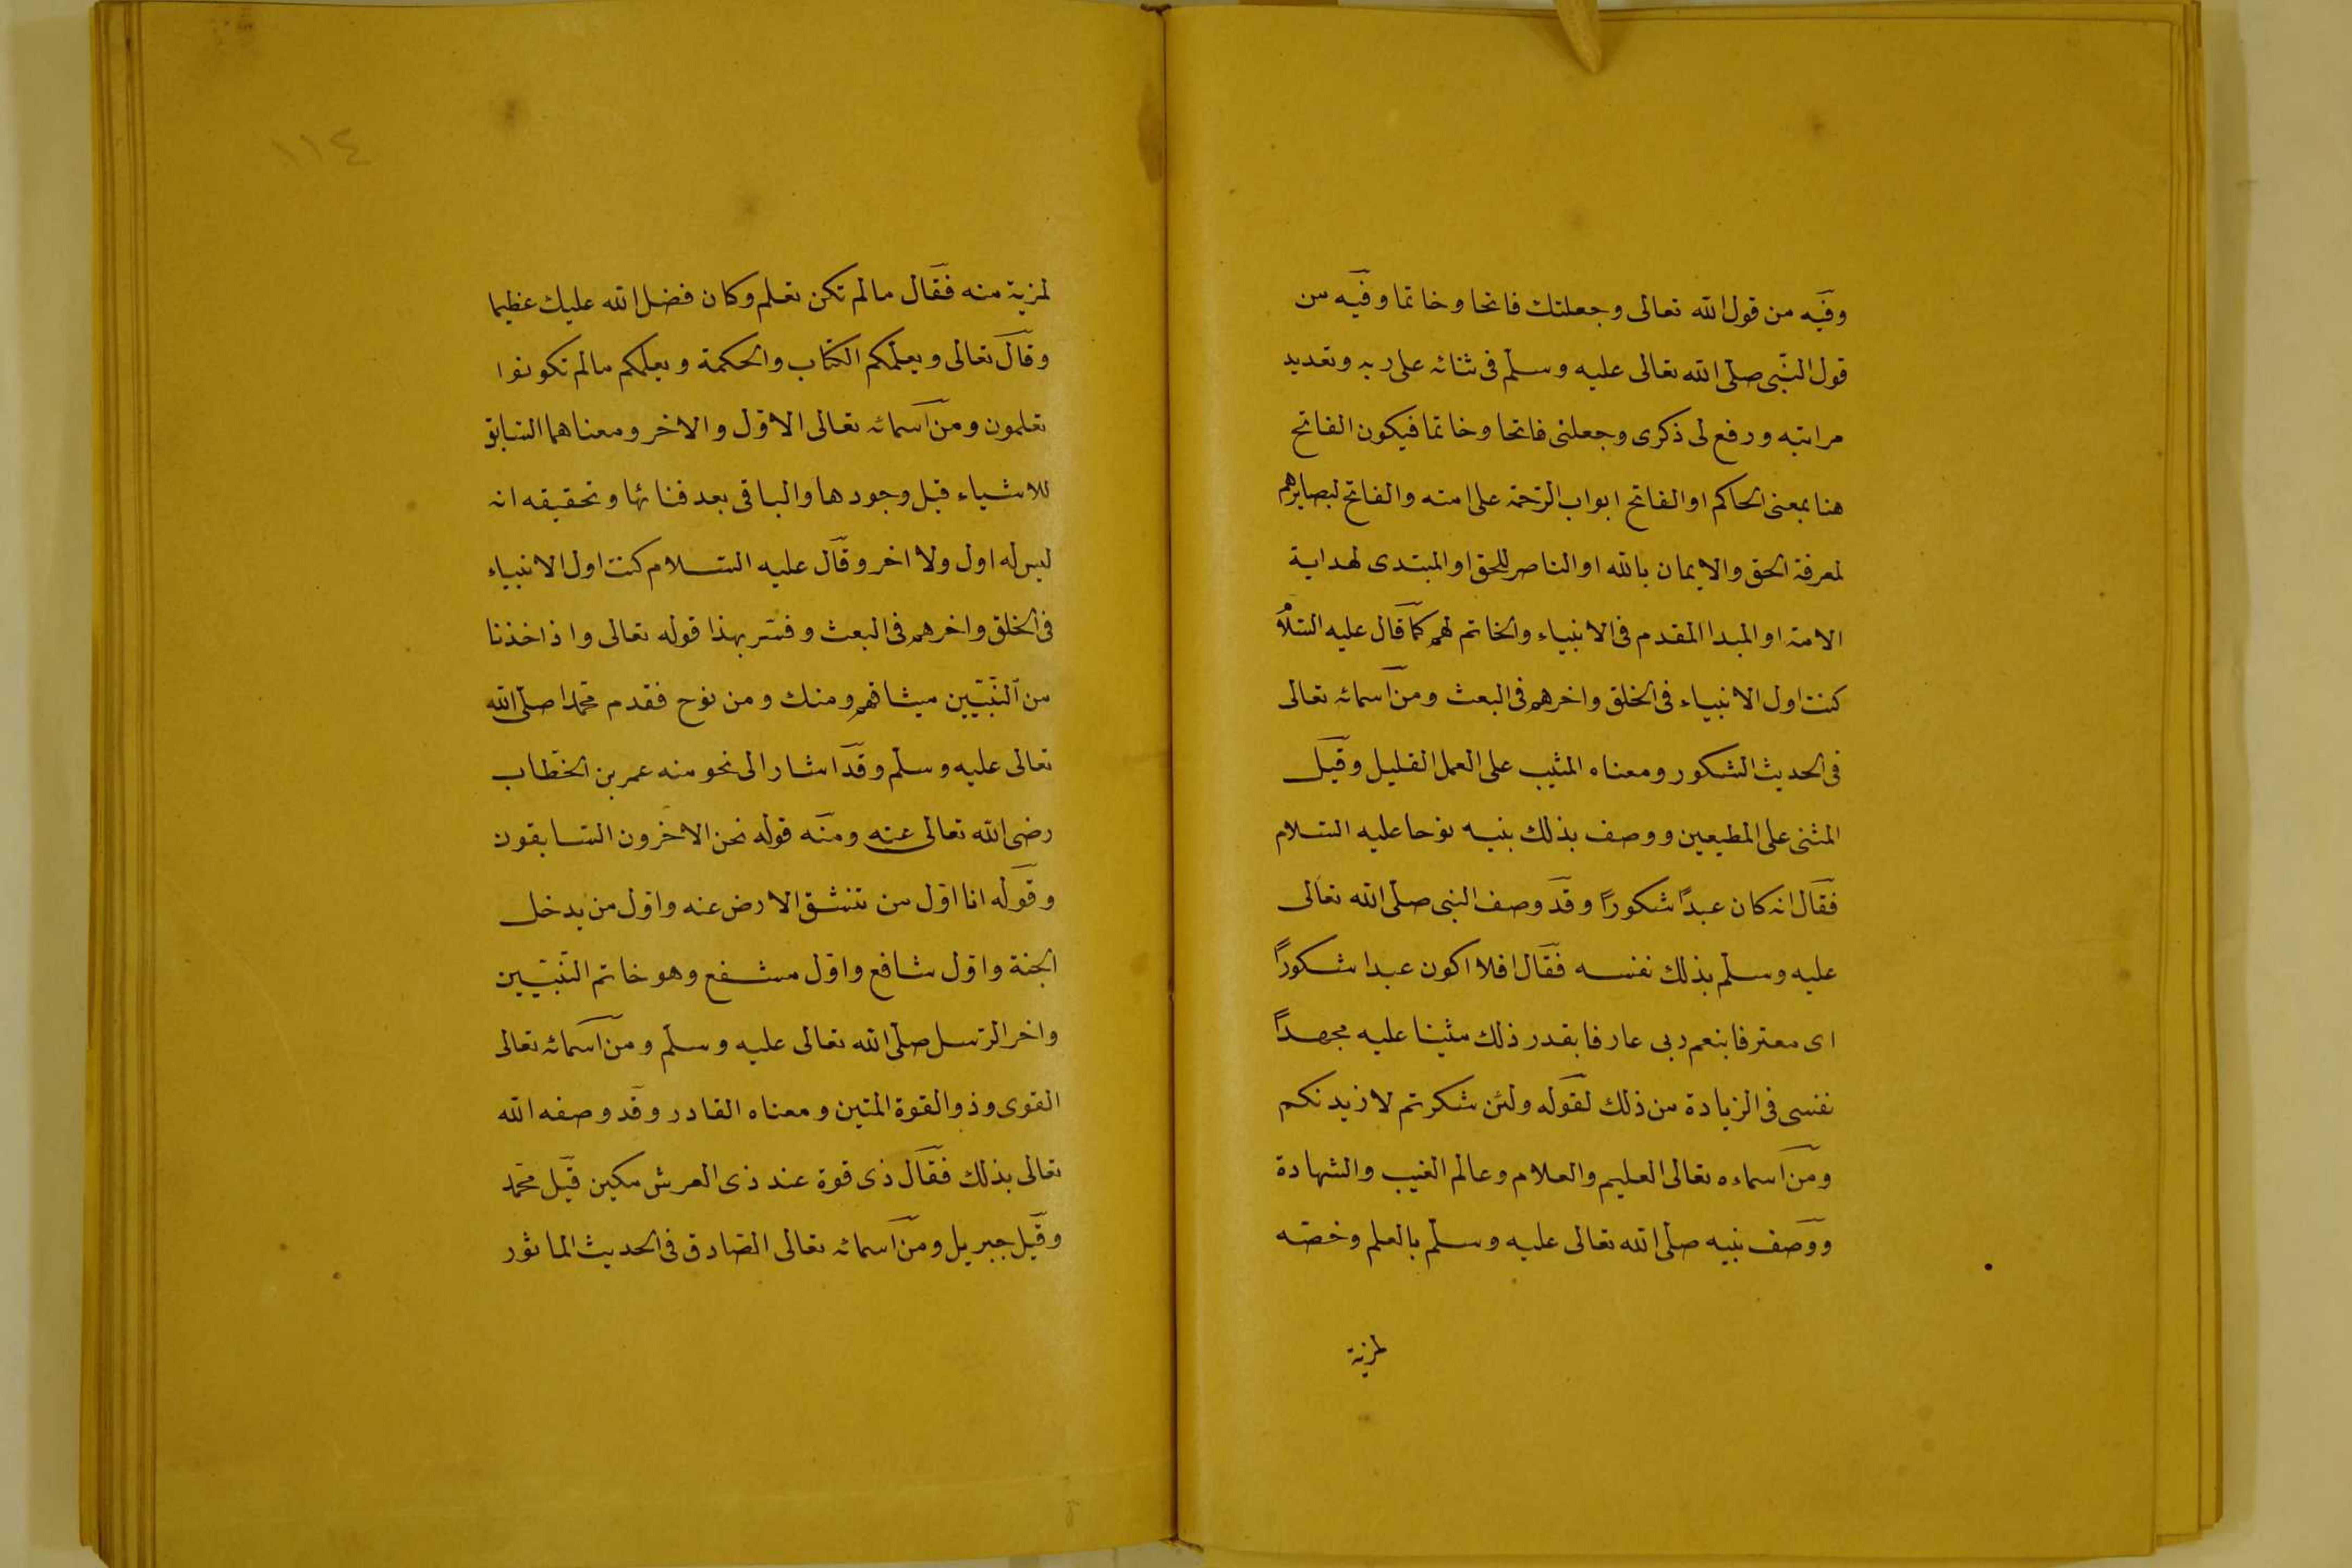 وفيه من قول الله تعالى وجعلتك فاتحا وخاتما وفيه من
قول النّبى صلّى الله تعالى عليه وسلّم فى ثنائه على ربه وتعديد
مراتبه ورفع لى ذكرى وجعلنى فاتحا وخاتما فيكون الفاتح
هنا بمعنى الحاكم او الفاتح ابواب الرّحمة على امته والفاتح لبصايرهم
لمعرفة الحق والايمان بالله او الناصر للحق او المبتدى لهداية
الامة او المبدا المقدم فى الانبياء والخاتم لهم كما قال عليه السّلام
كنت اول الانبياء فى الخلق واخرهم فى البعث ومن اسمائه تعالى
فى الحديث الشكور ومعناه المثيب على العمل القليل وقيل
المثنى على المطيعين ووصف بذلك بنيه نوحا عليه السّلام
فقال انه كان عبدًا شكورًا وقد وصف النبى صلّى الله تعالى
عليه وسلّم بذلك نفسه فقال افلا اكون عبدا شكورًا
اى معترفا بنعم ربى عارفا بقدر ذلك مثينا عليه مجهدًا
نفسى فى الزيادة من ذلك لقوله ولئن شكرتم لازيدنكم
ومن اسماءه تعالى العليم والعلام وعالم الغيب والشهادة
ووصف نبيه صلّى الله تعالى عليه وسلّم بالعلم وخصّه
لمزية
١١٤
لمزية منه فقال مالم تكن تعلم وكان فضل الله عليك عظيما
وقال تعالى ويعلّمكم الكتاب والحكمة ويعلمكم مالم تكونوا
تعلمون ومن اسمائه تعالى الاوّل والاخر ومعناهما السّابق
للاشياء قبل وجودها والباقى بعد فنائها وتحقيقه انه
ليس له اول ولا اخر وقال عليه السّلام كنت اول الانبياء
فى الخلق واخرهم فى البعث وفسّر بهذا قوله تعالى واذ اخذنا
من النّبيّين ميثاقهم ومنك ومن نوح فقدم محمّدا صلّى الله
تعالى عليه وسلّم وقد اشار الى نحو منه عمر بن الخطّاب
رضى الله تعالى عنه ومنه قوله نحن الاخرون السّابقون
وقوله انا اوّل من تنشق الارض عنه واوّل من يدخل
الجنة واوّل شافع واوّل مشفع وهو خاتم النّبيّين
واخر الرّسل صلّى الله تعالى عليه وسلّم ومن اسمائه تعالى
القوى وذو القوة المتين ومعناه القادر وقد وصفه الله
تعالى بذلك فقال ذى قوة عند ذى العرش مكين قيل محمّد
وقيل جبريل ومن اسمائه تعالى الصّادق فى الحديث الماثور